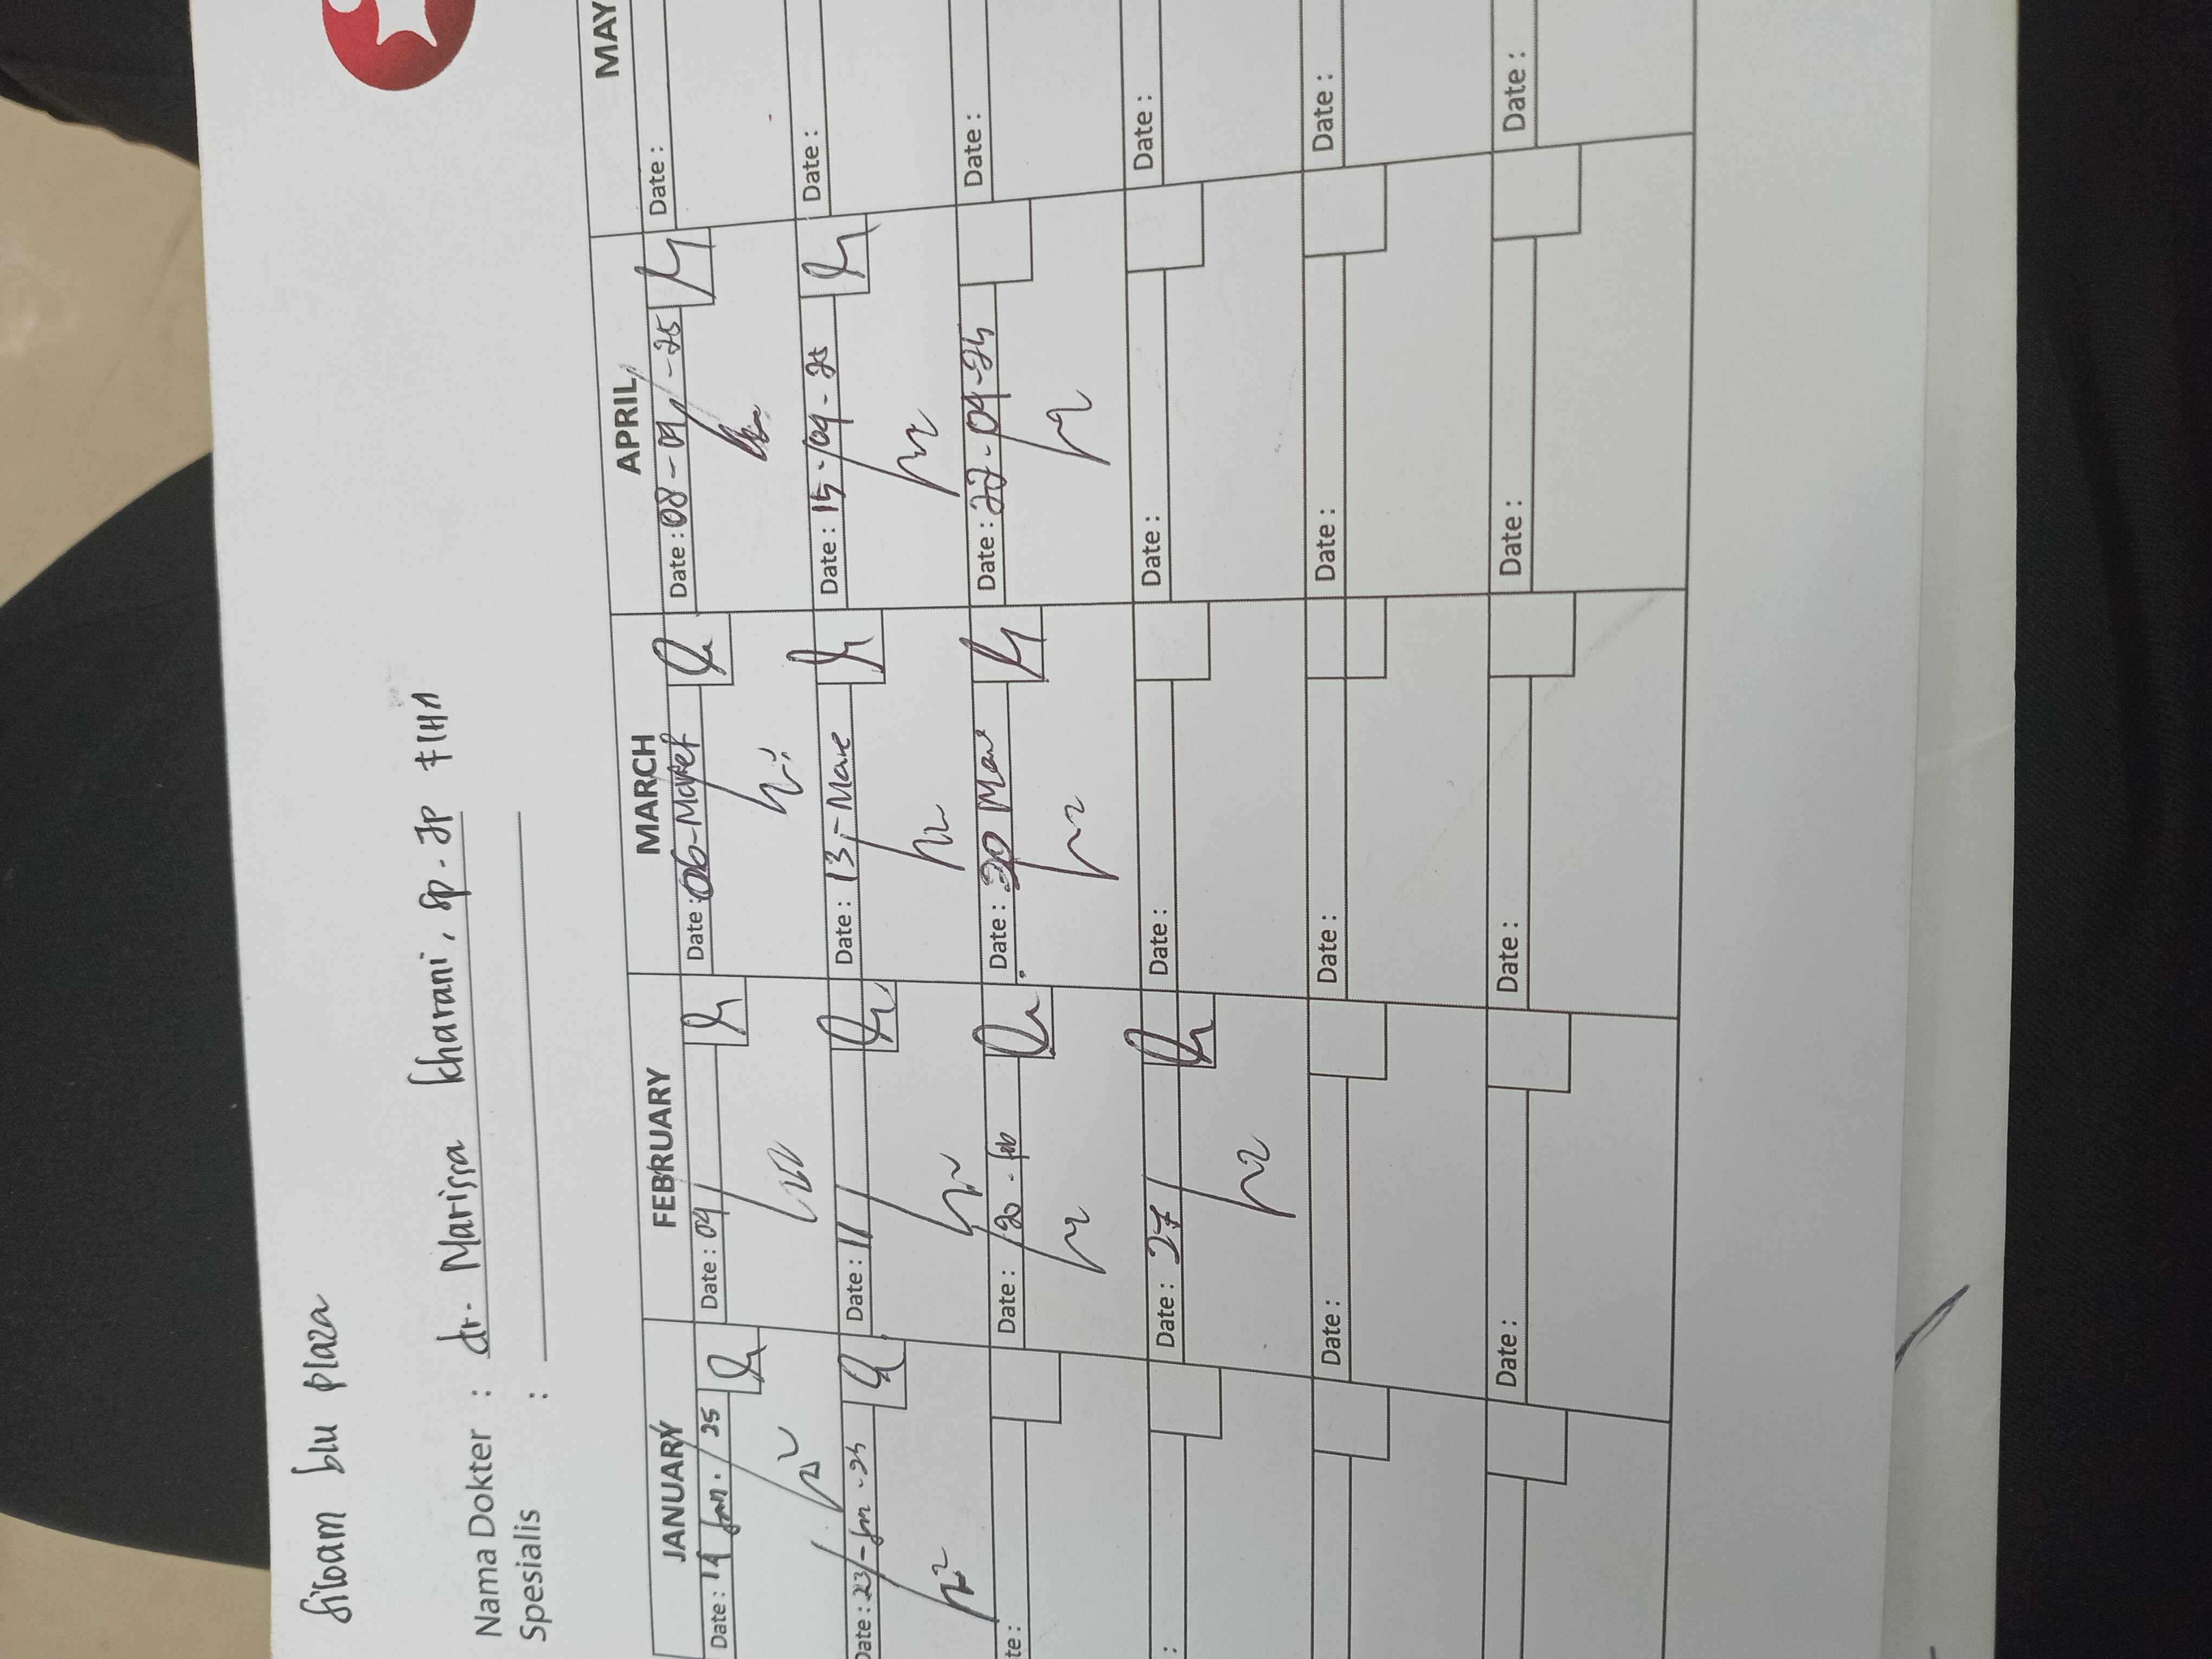 Siloam blu plaza
Nama Dokter : dr. Marissa Kharani, Sp. JP FIHA
Spesialis :
JANUARY FEBRUARY MARCH APRIL MAY
Date : 14 Jan. 25 Date : 04 Date : 06-Maret Date : 08-04-25 Date :
Date : 23-Jan-25 Date : 11 Date : 13-Mare Date : 15-04-25 Date :
te : Date : 20-feb Date : 20 Mar Date : 22-04-25 Date :
: Date : 27 Date : Date : Date :
Date : Date : Date : Date :
Date : Date : Date : Date :